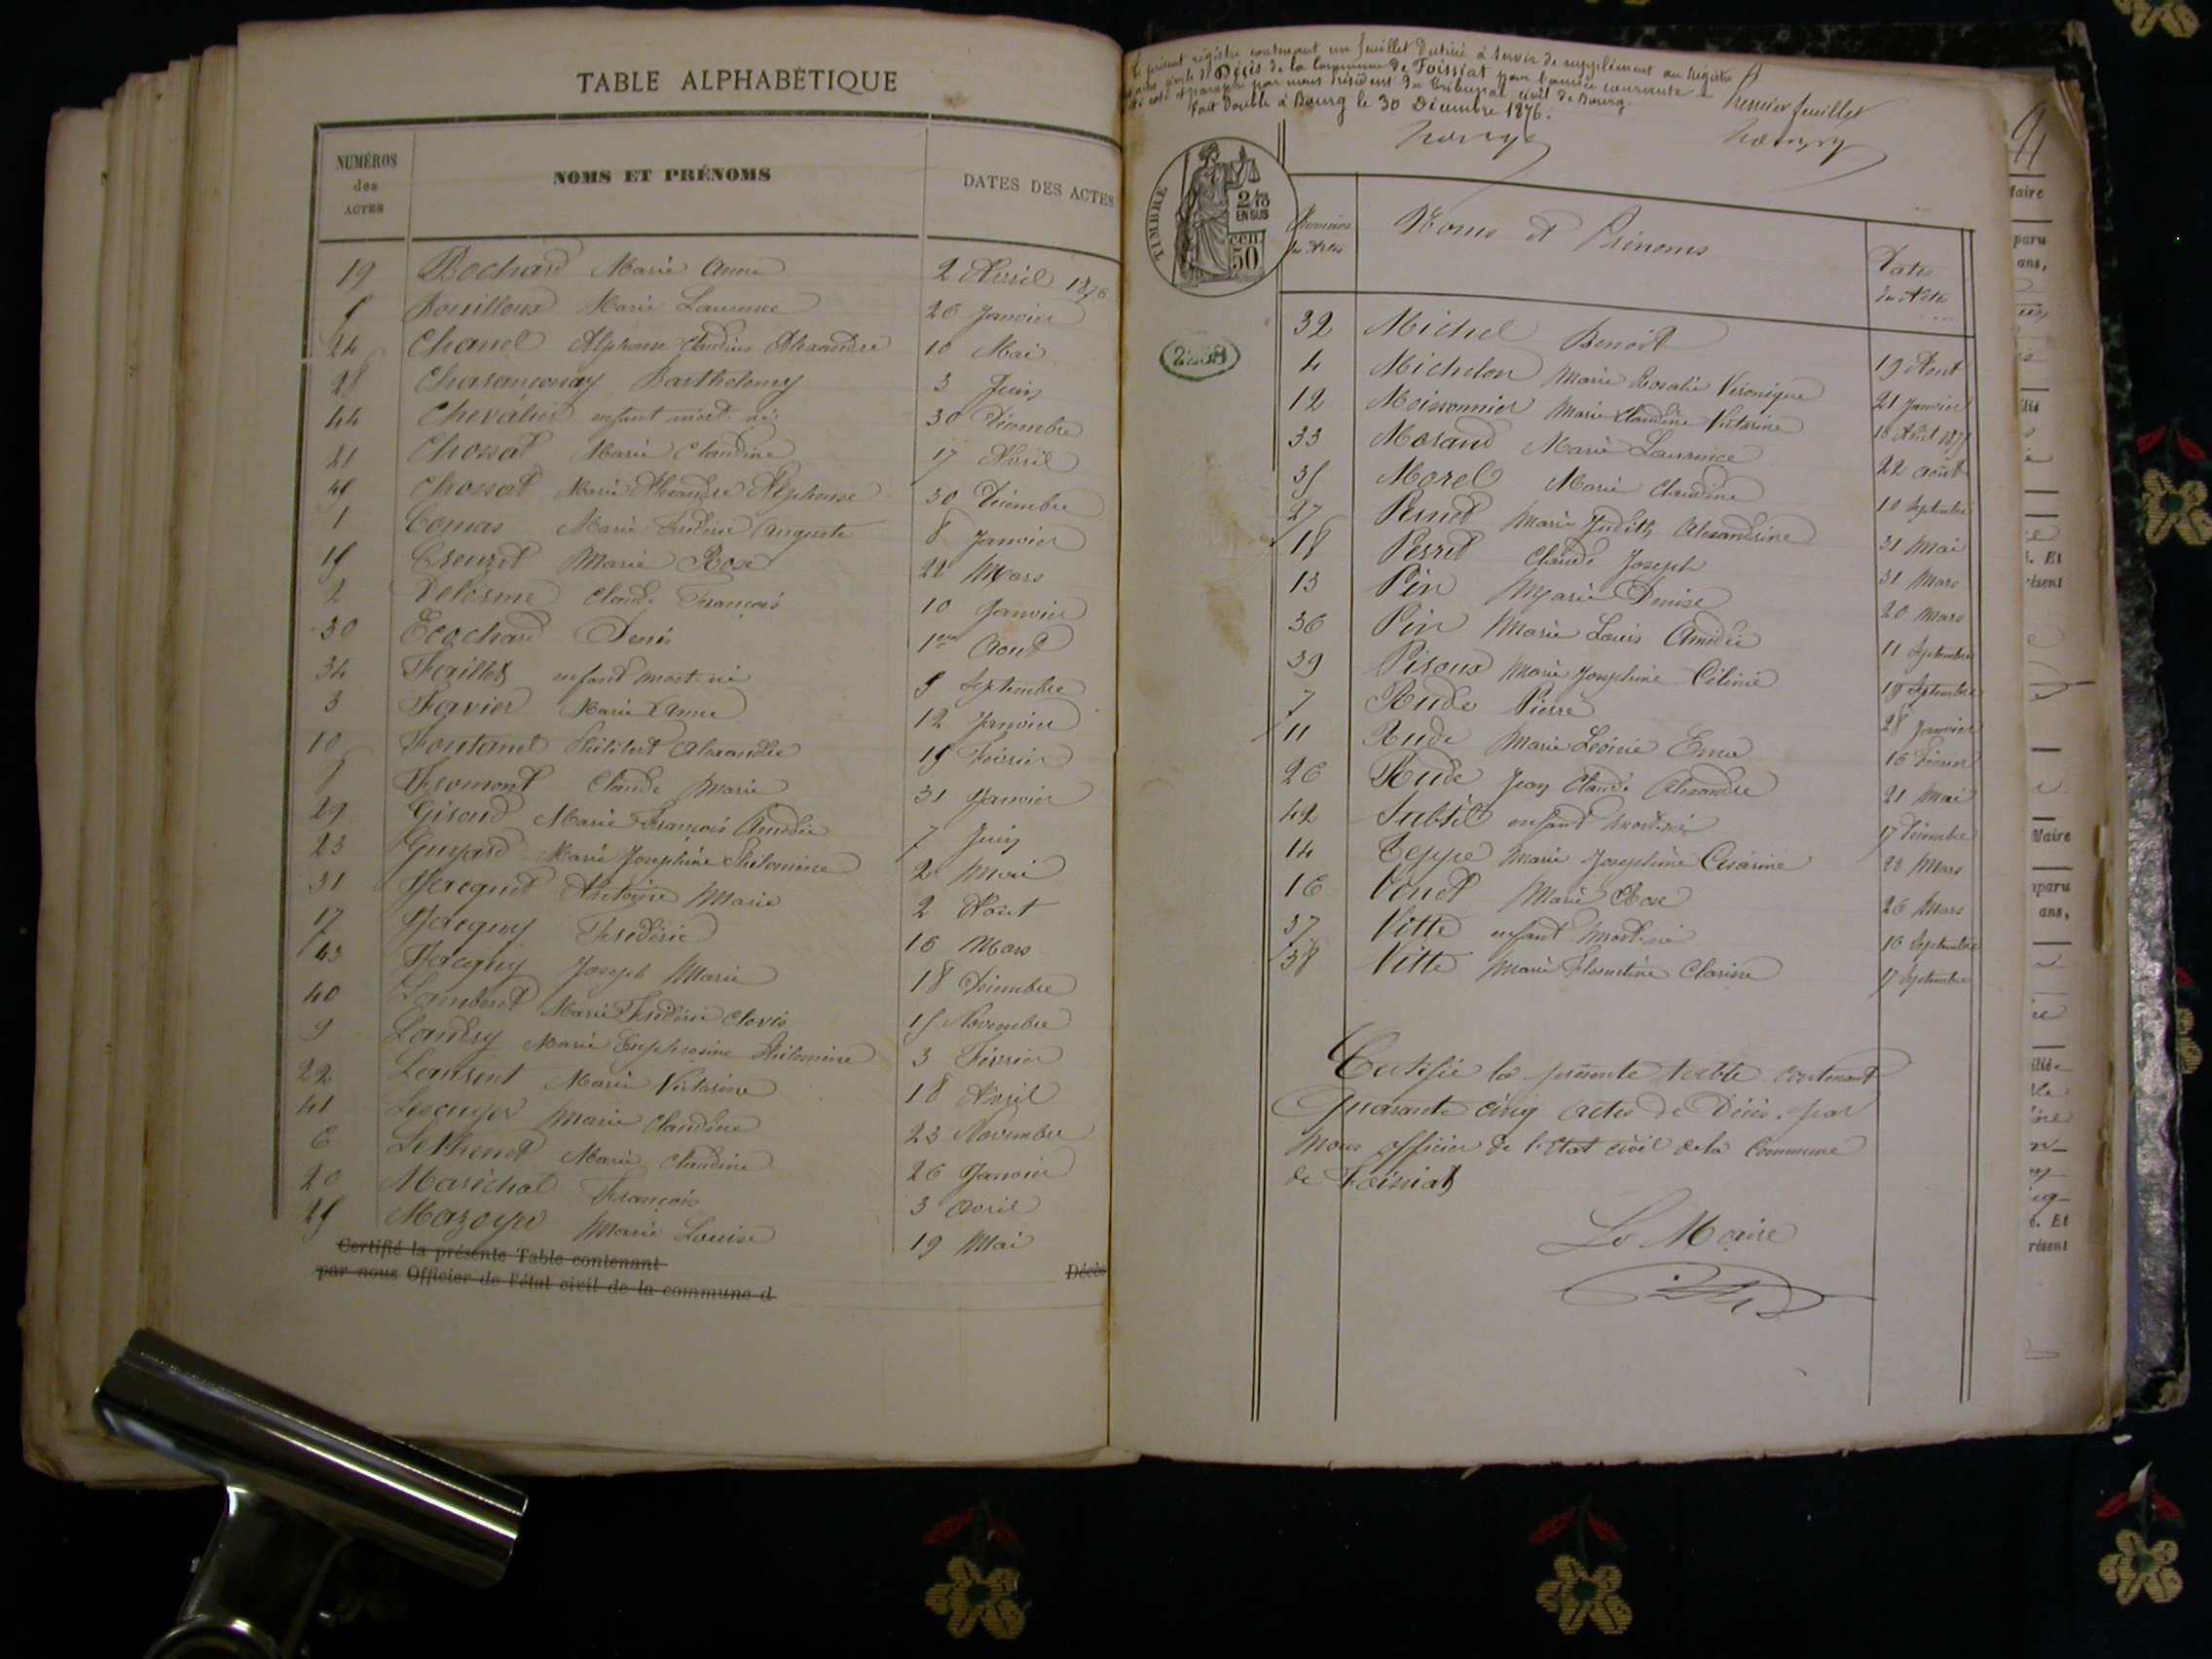 TABLE ALPHABÉTIQUE
NUMÉROS des ACTES
NOMS ET PRÉNOMS
DATES DES ACTES
19 Bochard Marie Anne 2 Avril 1876
5 Bouilloux Marie Laurence 26 Janvier
24 Chanel Alphonse Claudius Alexandre 10 Mai
28 Chasançonay Barthelemy 3 Juin
44 Chevalier enfant mort-né 30 Décembre
21 Chossat Marie Claudine 17 Avril
45 Chossat Marie Alexandre Alphonse 30 Décembre
1 Comas Marie Frédéric Auguste 8 Janvier
15 Creuzet Marie Rose 22 Mars
2 Delorme Claude François 10 Janvier
30 Ecochard Denis 1er Aout
34 Feuillet enfant mort-né 5 Septembre
3 Favier Marie Anne 12 Janvier
10 Fontanel Philibert Alexandre 15 Février
8 Fromont Claude Marie 31 Janvier
29 Giroud Marie François Amédée 7 Juin
23 Guyard Marie Joséphine Philomène 2 Mai
31 Jacquet Antoine Marie 2 Août
17 Jacquy Frédéric 16 Mars
43 Jacquy Joseph Marie 18 Décembre
40 Lamberet Marie Frédéric Clovis 15 Novembre
9 Landry Marie Euphrosine Philomène 3 Février
22 Laurent Marie Victorine 18 Avril
41 Lescuyer Marie Claudine 23 Novembre
6 LeThenet Marie Claudine 26 Janvier
20 Maréchal François 3 Avril
25 Mazoyer Marie Louise 19 Mai
Certifié la présente Table contenant Décès
par nous Officier de l'état civil de la commune d
Le présent registre contenant un feuillet destiné à servir de supplément au registre
des actes civils de Décès de la Commune de Foissiat pour l'année courante
été coté et paraphé par nous Président du Tribunal civil de Bourg.
Fait double à Bourg le 30 Décembre 1876.
Premier feuillet
TIMBRE
2/10
EN SUS
50
CEN
Numéros des Actes
Noms et Prénoms
Dates des Actes
32 Michel Benoit 19 Aout
4 Michelon Marie Rosalie Véronique 21 Janvier
12 Moissonnier Marie Claudine Victorine
33 Morand Marie Laurence 22 août
35 Morel Marie Claudine 10 Septembre
27 Pernet Marie Judith Alexandrine 31 Mai
18 Perret Claude Joseph 31 Mars
13 Pin Marie Denise 20 Mars
36 Pin Marie Louis Amédée 11 Septembre
39 Piroux Marie Joséphine Célinie 19 Septembre
7 Rude Pierre 28 Janvier
11 Rude Marie Léonie Ema 16 Février
26 Rude Jean Claude Alexandre 21 Mai
42 Subtil enfant mort-né 17 Décembre
14 Teppe Marie Joséphine Césarine 20 Mars
16 Venet Marie Rose 26 Mars
37 Vitte enfant mort-né 16 Septembre
38 Vitte Marie Florentine Clarisse 17 Septembre
Certifié la présente table contenant
Quarante cinq actes de Décès, par
nous officier de l'Etat civil de la Commune
de Foissiat
Le Maire
Maire
paru
ans,
. Et
résent
Maire
paru
ans,
. Et
résent